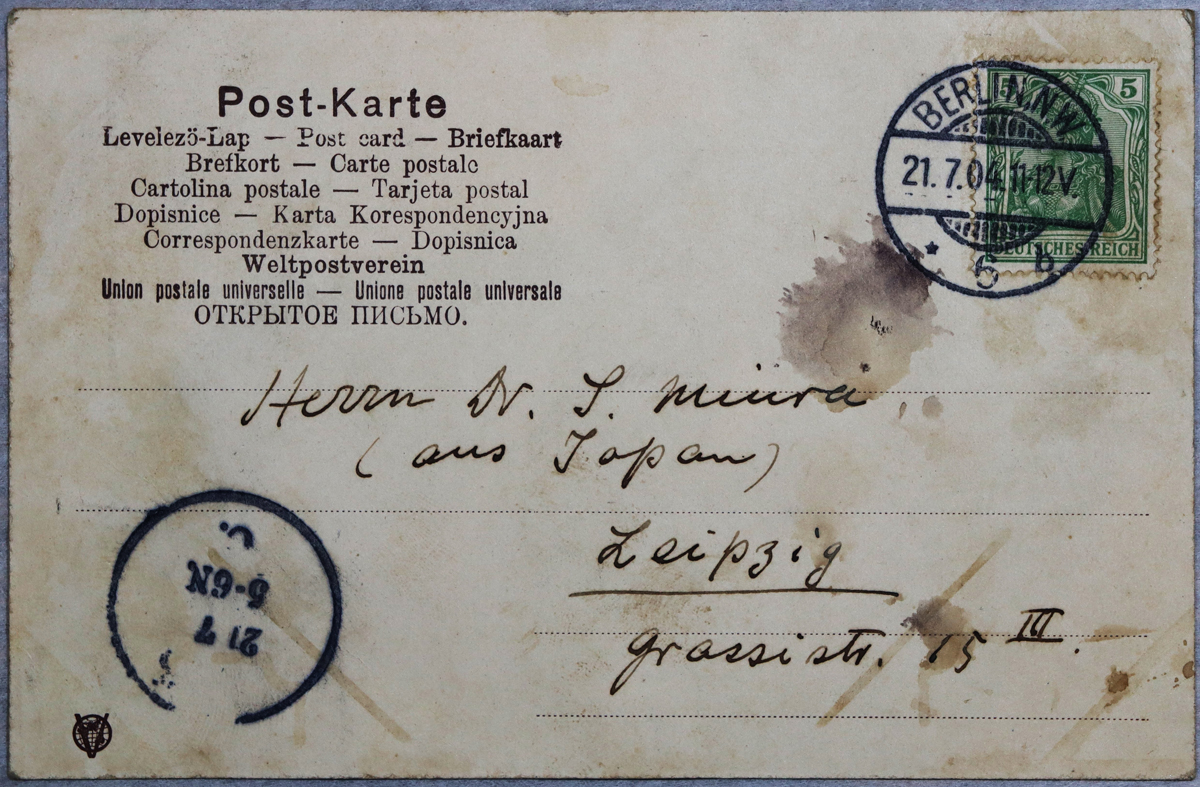 Post-Karte
Levelező-Lap — Post card — Briefkaart
Brefkort — Carte postale
Cartolina postale — Tarjeta postal
Dopisnice — Karta Korespondencyjna
Correspondenzkarte — Dopisnica
Weltpostverein
Union postale universelle — Unione postale universale
ОТКРЫТОЕ ПИСЬМО.
BERLIN.N.W
21.7.04.11-12V
* 6 b
5
DEUTSCHES REICH
Herrn Dr. S. Miura
(aus Japan)
Leipzig
Grassistr. 15 III.
21 7
5-6N